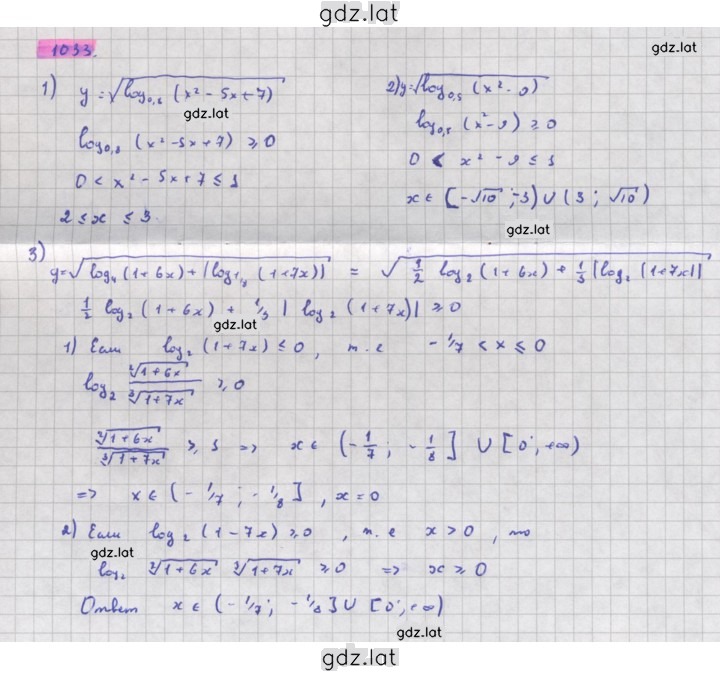 gdz.lat
1033.
gdz.lat
1) y = √(log₀,₈ (x² - 5x + 7))
gdz.lat
log₀,₈ (x² - 5x + 7) ≥ 0
0 < x² - 5x + 7 ≤ 1
2 ≤ x ≤ 3
2) y = √(log₀,₅ (x² - 9))
log₀,₅ (x² - 9) ≥ 0
0 < x² - 9 ≤ 1
x ∈ [-√10 ; -3) ∪ (3 ; √10)
3)
y = √(log₄ (1 + 6x) + |log (1 + 7x)|) = √(1/2 log₂ (1 + 6x) + 1/3 |log₂ (1 + 7x)|)
1/2 log₂ (1 + 6x) + 1/3 | log₂ (1 + 7x)| ≥ 0
gdz.lat
1) Если log₂ (1 + 7x) ≤ 0, т.е - 1/7 < x ≤ 0
log₂ ²√(1 + 6x) / ³√(1 + 7x) ≥ 0
²√(1 + 6x) / ³√(1 + 7x) ≥ 1 => x ∈ (- 1/7 ; - 1/8 ] ∪ [0 ; +∞)
=> x ∈ (- 1/7 ; - 1/8 ], x = 0
2) Если log₂ (1 - 7x) ≥ 0, т.е x > 0, то
gdz.lat
log₂ ²√(1 + 6x) ³√(1 + 7x) ≥ 0 => x ≥ 0
Ответ x ∈ (- 1/7 ; - 1/8 ] ∪ [0 ; +∞)
gdz.lat
gdz.lat